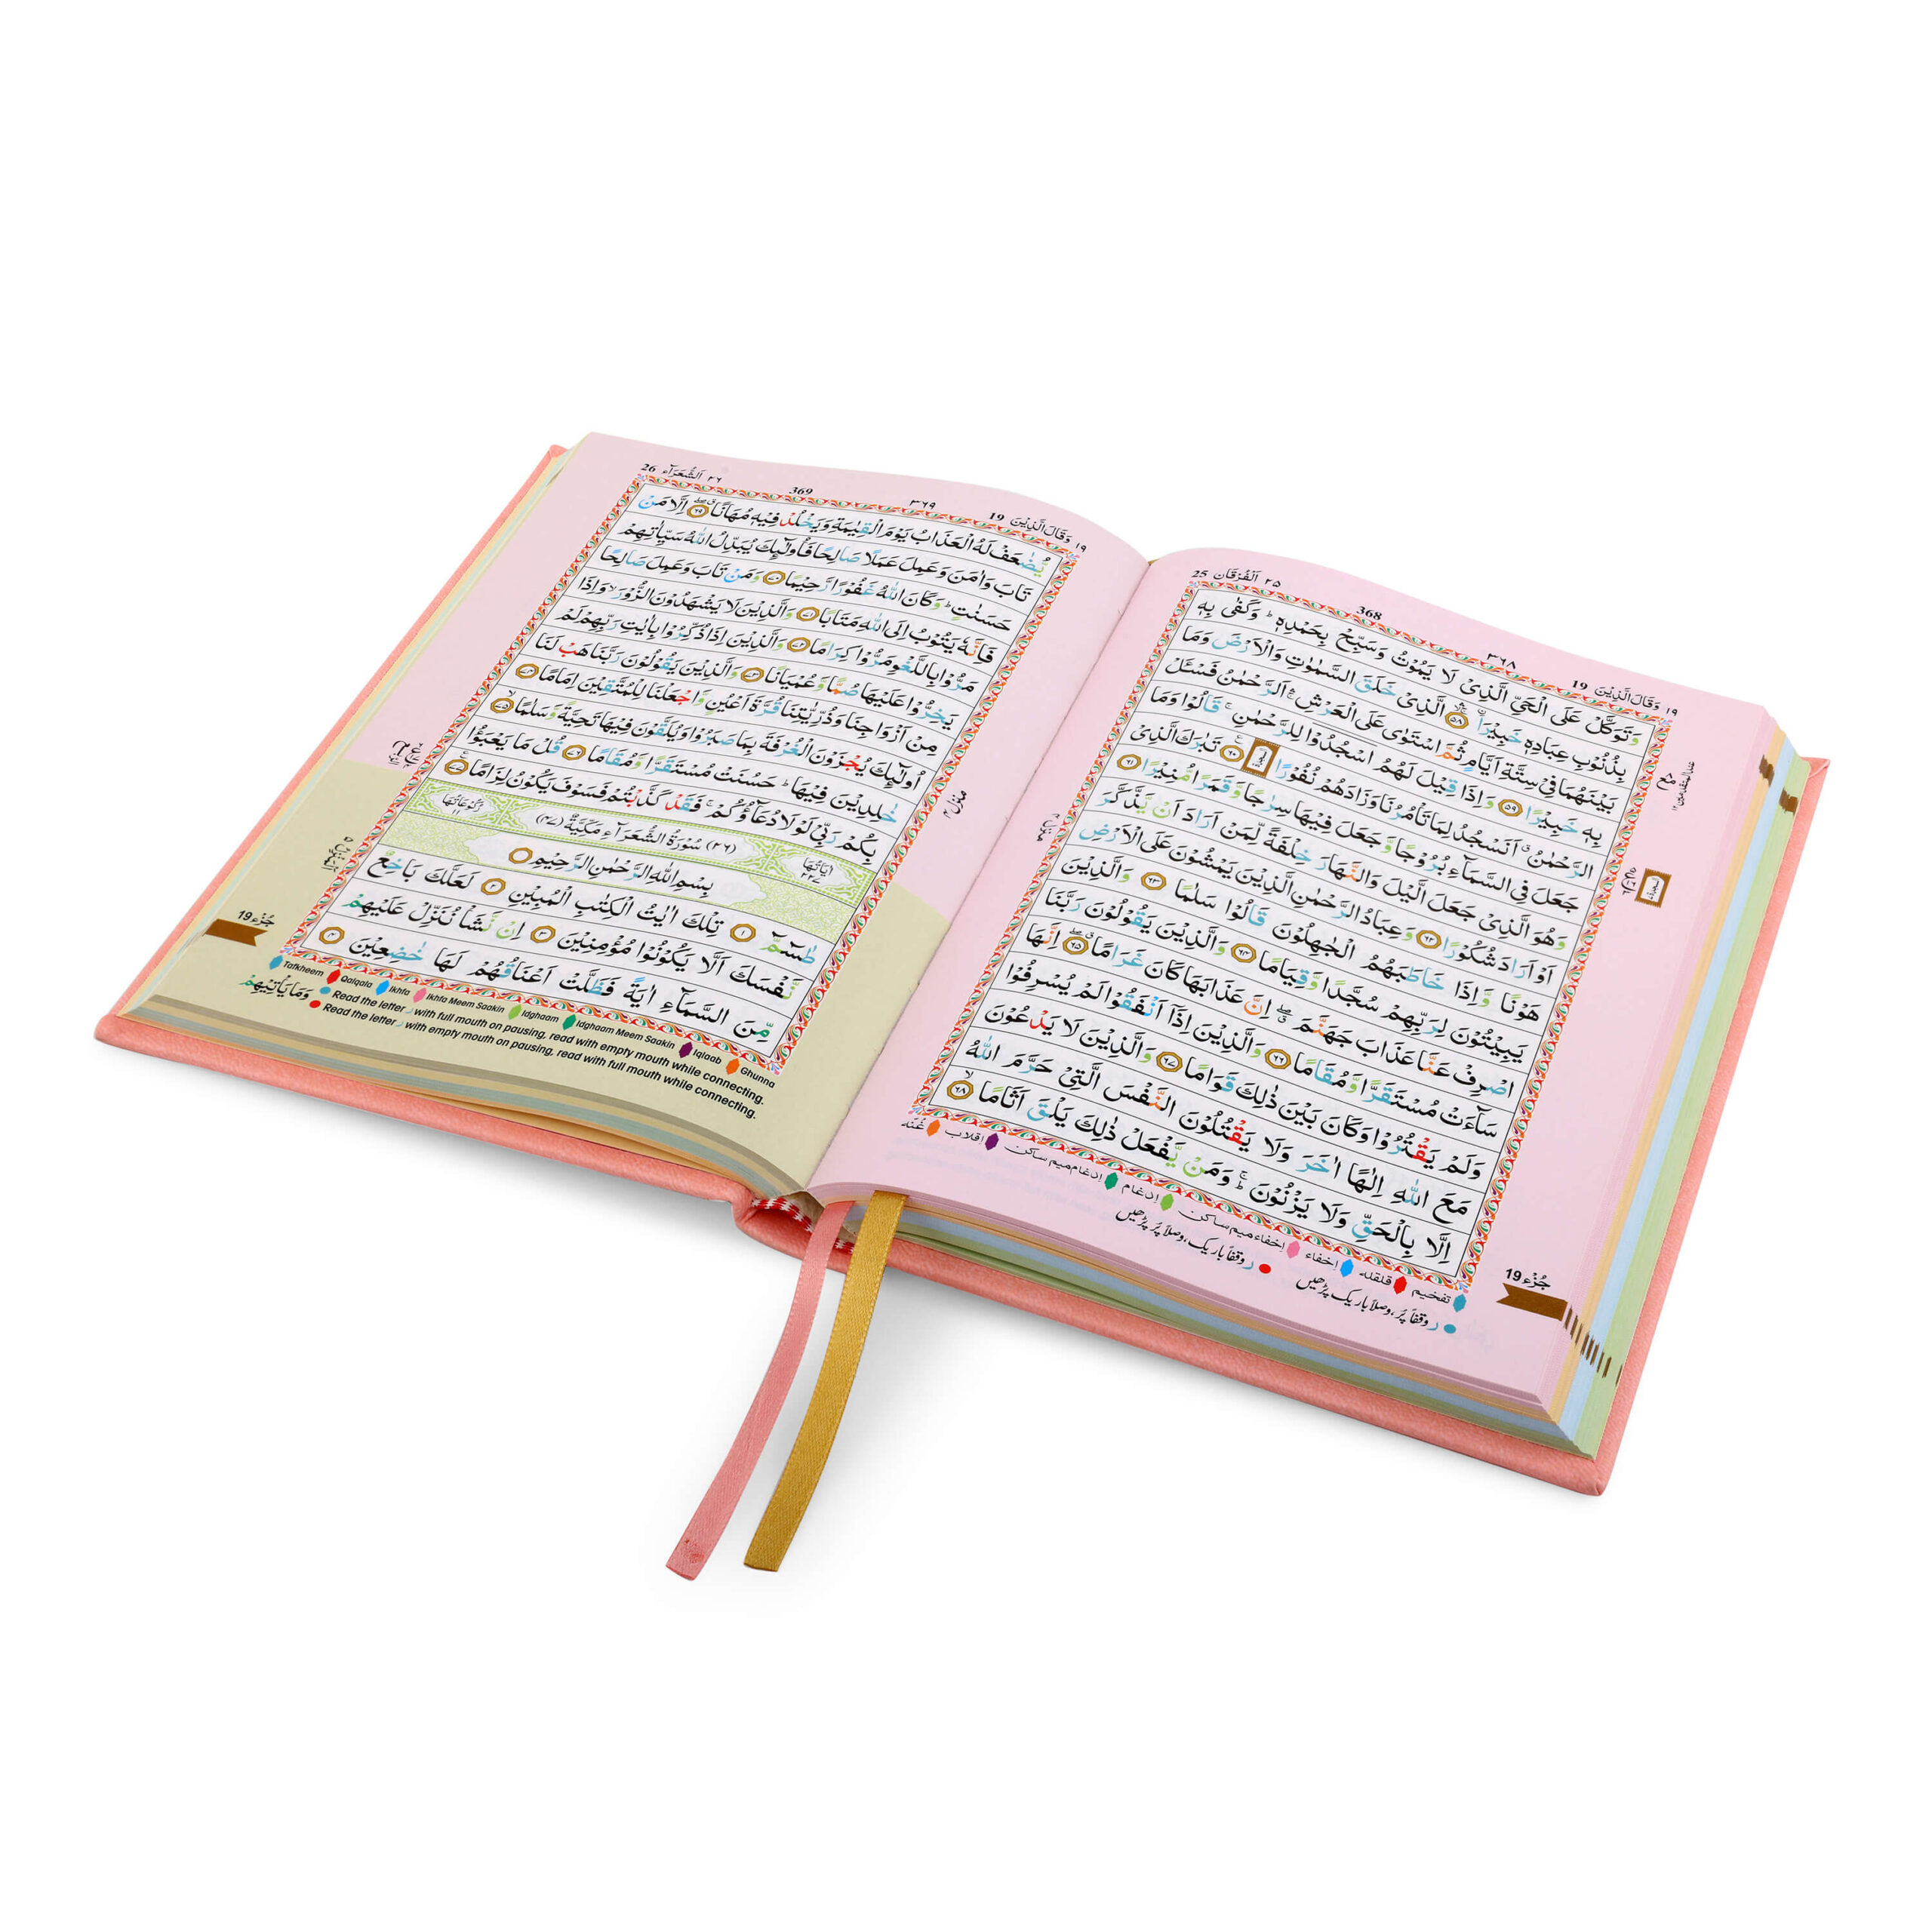 25 ٢٥ اَلْفُرْقَان 368 ٣٦٨ 19 وَقَالَ الَّذِيْنَ ١٩
وَتَوَكَّلْ عَلَى الْحَيِّ الَّذِيْ لَا يَمُوْتُ وَسَبِّحْ بِحَمْدِهٖ ؕ وَكَفٰى بِهٖ
بِذُنُوْبِ عِبَادِهٖ خَبِيْرَا ۛۚ ۵۸ الَّذِيْ خَلَقَ السَّمٰوٰتِ وَالْاَرْضَ وَمَا
بَيْنَهُمَا فِيْ سِتَّةِ اَيَّامٍ ثُمَّ اسْتَوٰى عَلَى الْعَرْشِ ۛۚ اَلرَّحْمٰنُ فَسْـَٔلْ
بِهٖ خَبِيْرًا ۵۹ وَاِذَا قِيْلَ لَهُمُ اسْجُدُوْا لِلرَّحْمٰنِ ۚ قَالُوْا وَمَا
الرَّحْمٰنُ ۗ اَنَسْجُدُ لِمَا تَاْمُرُنَا وَزَادَهُمْ نُفُوْرًا السجدة ۶۰ تَبٰرَكَ الَّذِيْ
جَعَلَ فِي السَّمَآءِ بُرُوْجًا وَّجَعَلَ فِيْهَا سِرٰجًا وَّقَمَرًا مُّنِيْرًا ۶۱
وَهُوَ الَّذِيْ جَعَلَ الَّيْلَ وَالنَّهَارَ خِلْفَةً لِّمَنْ اَرَادَ اَنْ يَّذَّكَّرَ
اَوْ اَرَادَ شُكُوْرًا ۶۲ وَعِبَادُ الرَّحْمٰنِ الَّذِيْنَ يَمْشُوْنَ عَلَى الْاَرْضِ
هَوْنًا وَّاِذَا خَاطَبَهُمُ الْجٰهِلُوْنَ قَالُوْا سَلٰمًا ۶۳ وَالَّذِيْنَ
يَبِيْتُوْنَ لِرَبِّهِمْ سُجَّدًا وَّقِيَامًا ۶۴ وَالَّذِيْنَ يَقُوْلُوْنَ رَبَّنَا
اصْرِفْ عَنَّا عَذَابَ جَهَنَّمَ ۖ اِنَّ عَذَابَهَا كَانَ غَرَامًا ۶۵ اِنَّهَا
سَآءَتْ مُسْتَقَرًّا وَّمُقَامًا ۶۶ وَالَّذِيْنَ اِذَاۤ اَنْفَقُوْا لَمْ يُسْرِفُوْا
وَلَمْ يَقْتُرُوْا وَكَانَ بَيْنَ ذٰلِكَ قَوَامًا ۶۷ وَالَّذِيْنَ لَا يَدْعُوْنَ
مَعَ اللّٰهِ اِلٰهًا اٰخَرَ وَلَا يَقْتُلُوْنَ النَّفْسَ الَّتِيْ حَرَّمَ اللّٰهُ
اِلَّا بِالْحَقِّ وَلَا يَزْنُوْنَ ۚ وَمَنْ يَّفْعَلْ ذٰلِكَ يَلْقَ اَثَامًا ۶۸
تفخیم قلقلہ اِخفاء اِخفاء میم ساکن اِدغام اِدغام میم ساکن اِقلاب غُنّہ
ر وقفاً پُر، وصلاً باریک پڑھیں ر وقفاً باریک، وصلاً پُر پڑھیں
السجدة
جُزْء 19
منزل ۴
26 ٢٦ اَلشُّعَرَآء 369 ٣٦٩ 19 وَقَالَ الَّذِيْنَ ١٩
يُّضٰعَفْ لَهُ الْعَذَابُ يَوْمَ الْقِيٰمَةِ وَيَخْلُدْ فِيْهٖ مُهَانًا ۶۹ اِلَّا مَنْ
تَابَ وَاٰمَنَ وَعَمِلَ عَمَلًا صَالِحًا فَاُولٰٓئِكَ يُبَدِّلُ اللّٰهُ سَيِّاٰتِهِمْ
حَسَنٰتٍ ؕ وَكَانَ اللّٰهُ غَفُوْرًا رَّحِيْمًا ۷۰ وَمَنْ تَابَ وَعَمِلَ صَالِحًا
فَاِنَّهٗ يَتُوْبُ اِلَى اللّٰهِ مَتَابًا ۷۱ وَالَّذِيْنَ لَا يَشْهَدُوْنَ الزُّوْرَ ۙ وَاِذَا
مَرُّوْا بِاللَّغْوِ مَرُّوْا كِرَامًا ۷۲ وَالَّذِيْنَ اِذَا ذُكِّرُوْا بِاٰيٰتِ رَبِّهِمْ لَمْ
يَخِرُّوْا عَلَيْهَا صُمًّا وَّعُمْيَانًا ۷۳ وَالَّذِيْنَ يَقُوْلُوْنَ رَبَّنَا هَبْ لَنَا
مِنْ اَزْوَاجِنَا وَذُرِّيّٰتِنَا قُرَّةَ اَعْيُنٍ وَّاجْعَلْنَا لِلْمُتَّقِيْنَ اِمَامًا ۷۴
اُولٰٓئِكَ يُجْزَوْنَ الْغُرْفَةَ بِمَا صَبَرُوْا وَيُلَقَّوْنَ فِيْهَا تَحِيَّةً وَّسَلٰمًا ۙ ۷۵
خٰلِدِيْنَ فِيْهَا ؕ حَسُنَتْ مُسْتَقَرًّا وَّمُقَامًا ۷۶ قُلْ مَا يَعْبَؤُا
بِكُمْ رَبِّيْ لَوْلَا دُعَآؤُكُمْ ۚ فَقَدْ كَذَّبْتُمْ فَسَوْفَ يَكُوْنُ لِزَامًا ۷۷
اٰيَاتُهَا ٢٢٧ (٢٦) سُوْرَةُ الشُّعَرَآءِ مَكِّيَّةٌ (٤٧) رُكُوْعَاتُهَا ١١
بِسْمِ اللّٰهِ الرَّحْمٰنِ الرَّحِيْمِ
طٰسٓمّٓ ۱ تِلْكَ اٰيٰتُ الْكِتٰبِ الْمُبِيْنِ ۲ لَعَلَّكَ بَاخِعٌ
نَّفْسَكَ اَلَّا يَكُوْنُوْا مُؤْمِنِيْنَ ۳ اِنْ نَّشَاْ نُنَزِّلْ عَلَيْهِمْ
مِّنَ السَّمَآءِ اٰيَةً فَظَلَّتْ اَعْنَاقُهُمْ لَهَا خٰضِعِيْنَ ۴
وَمَا يَاْتِيْهِمْ
Tafkheem Qalqala Ikhfa Ikhfa Meem Saakin Idghaam Idghaam Meem Saakin Iqlaab Ghunna
Read the letter ر with full mouth on pausing, read with empty mouth while connecting.
Read the letter ر with empty mouth on pausing, read with full mouth while connecting.
جُزْء 19
منزل ۴